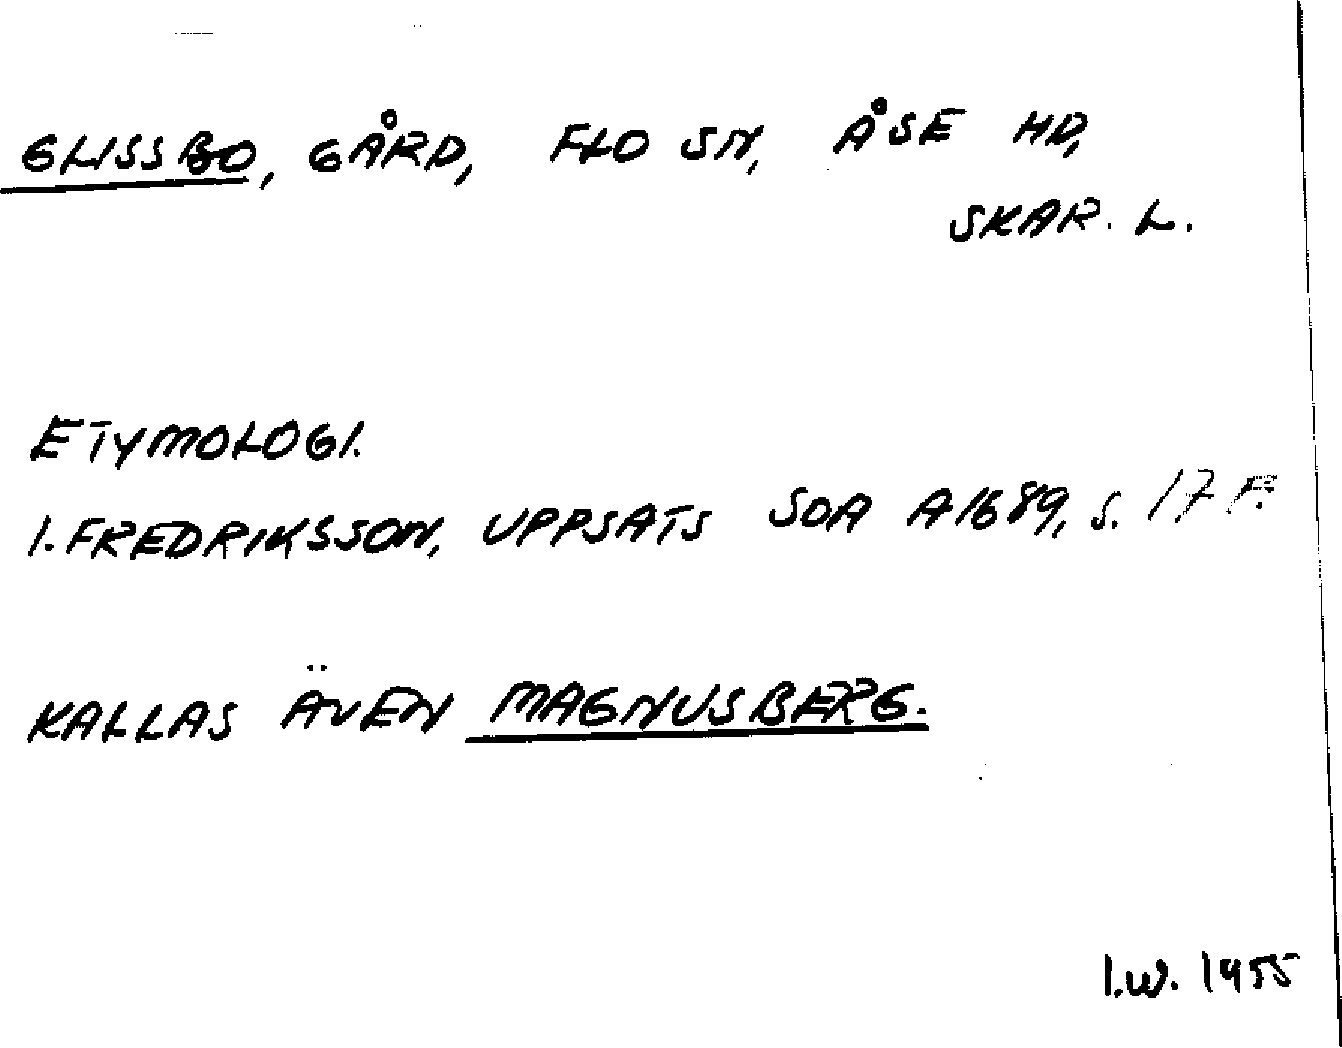 GLISSBO, GÅRD, FLO SN, ÅSE HD,
SKAR. L.
ETYMOLOGI.
I. FREDRIKSSON, UPPSATS SOA A1689, S. 17 F.
KALLAS ÄVEN MAGNUSBERG.
I.W. 1955